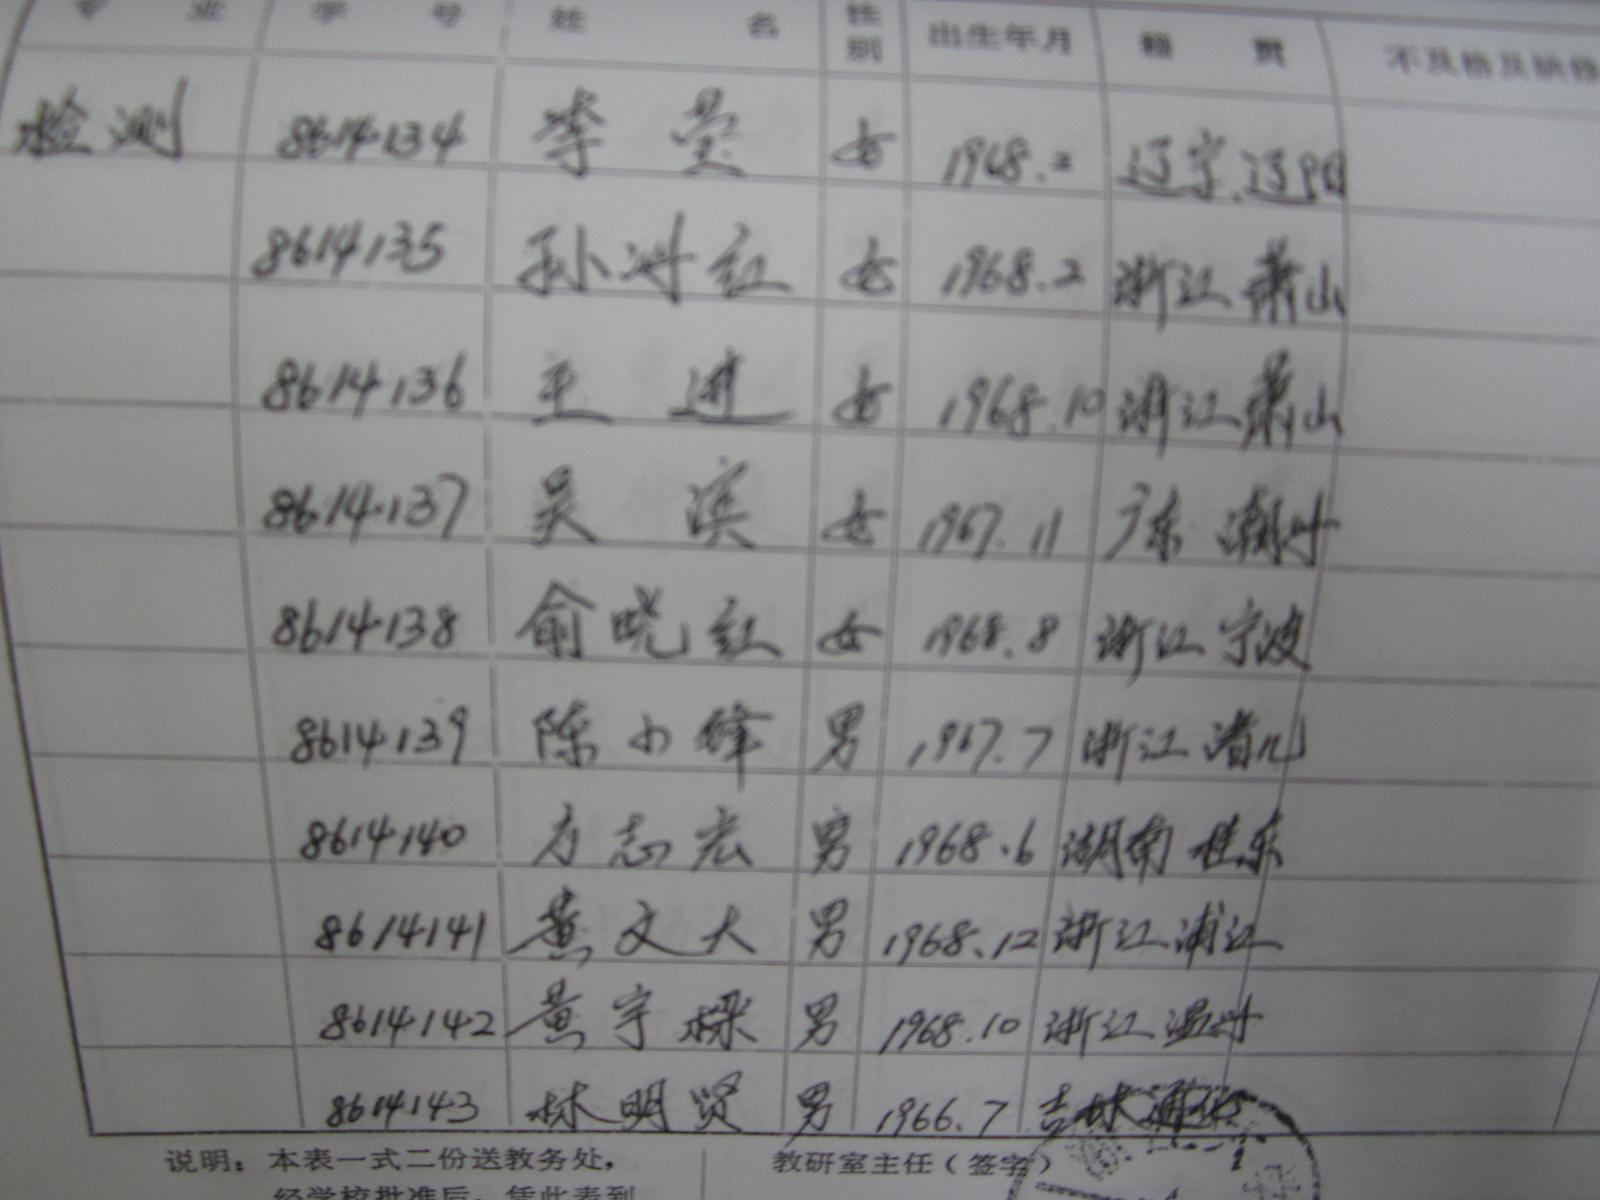 专 业 学 号 姓 名 性别 出生年月 籍 贯 不及格及缺修
检测 8614134 李莹 女 1968.2 辽宁辽阳
8614135 孙冰红 女 1968.2 浙江萧山
8614136 王进 女 1968.10 浙江萧山
8614137 吴滨 女 1967.11 广东潮州
8614138 俞晓红 女 1968.8 浙江宁波
8614139 陈小锋 男 1967.7 浙江
8614140 方志宏 男 1968.6 湖南桂东
8614141 黄文大 男 1968.12 浙江浦江
8614142 黄宇樑 男 1968.10 浙江温州
8614143 林明贤 男 1966.7 吉林通化
说明：本表一式二份送教务处， 教研室主任（签字）
经学校批准后，凭此表到